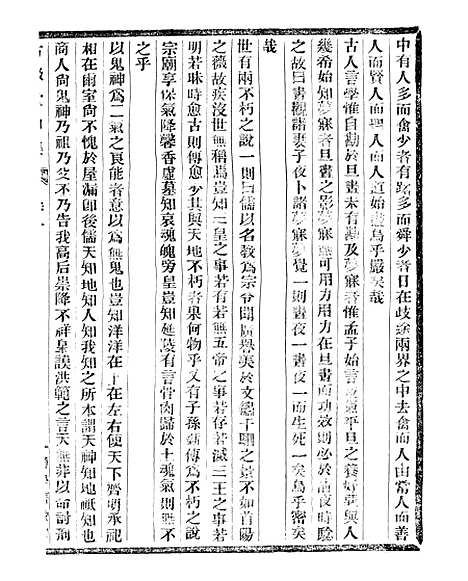 中有人多而禽少者有蹠多而舜少者日在歧途兩界之中去禽而人由常人而善
人而賢人而聖人而人道始盡烏乎嚴矣哉
古人言學惟自勘於旦晝未有勘及夢寐者惟孟子始言夜氣平旦之養好惡與人
幾希始知夢寐者旦晝之影夢寐無可用力用力在旦晝而功效則於夜時驗
之故曰晝觀諸妻子夜卜諸夢寐夢覺一則晝夜一而生死一矣烏乎密矣
哉
世有兩不朽之說一則曰儒以名教為宗令聞廣譽美於文繡千駟之景不如首陽
之薇故疾沒世無稱焉豈知三皇之事若有若無五帝之事若存若滅三王之事若
明若昧時愈古則傳愈少其與天地不朽者果何物乎又有子孫薪傳為不朽之說
宗廟享保氣降馨香虛墓知哀魂魄旁皇豈知延陵有言骨肉歸於土魂氣則無不
之乎
以鬼神為二氣之良能者意以為無鬼也豈知洋洋在上在左右使天下齊明承祀
相在爾室尚不愧於屋漏即後儒天知地知人知我知之所本謂天神知地祇知也
商人尚鬼神乃祖乃父不乃告我高后崇降不祥皋謨洪範之言天無非以命討